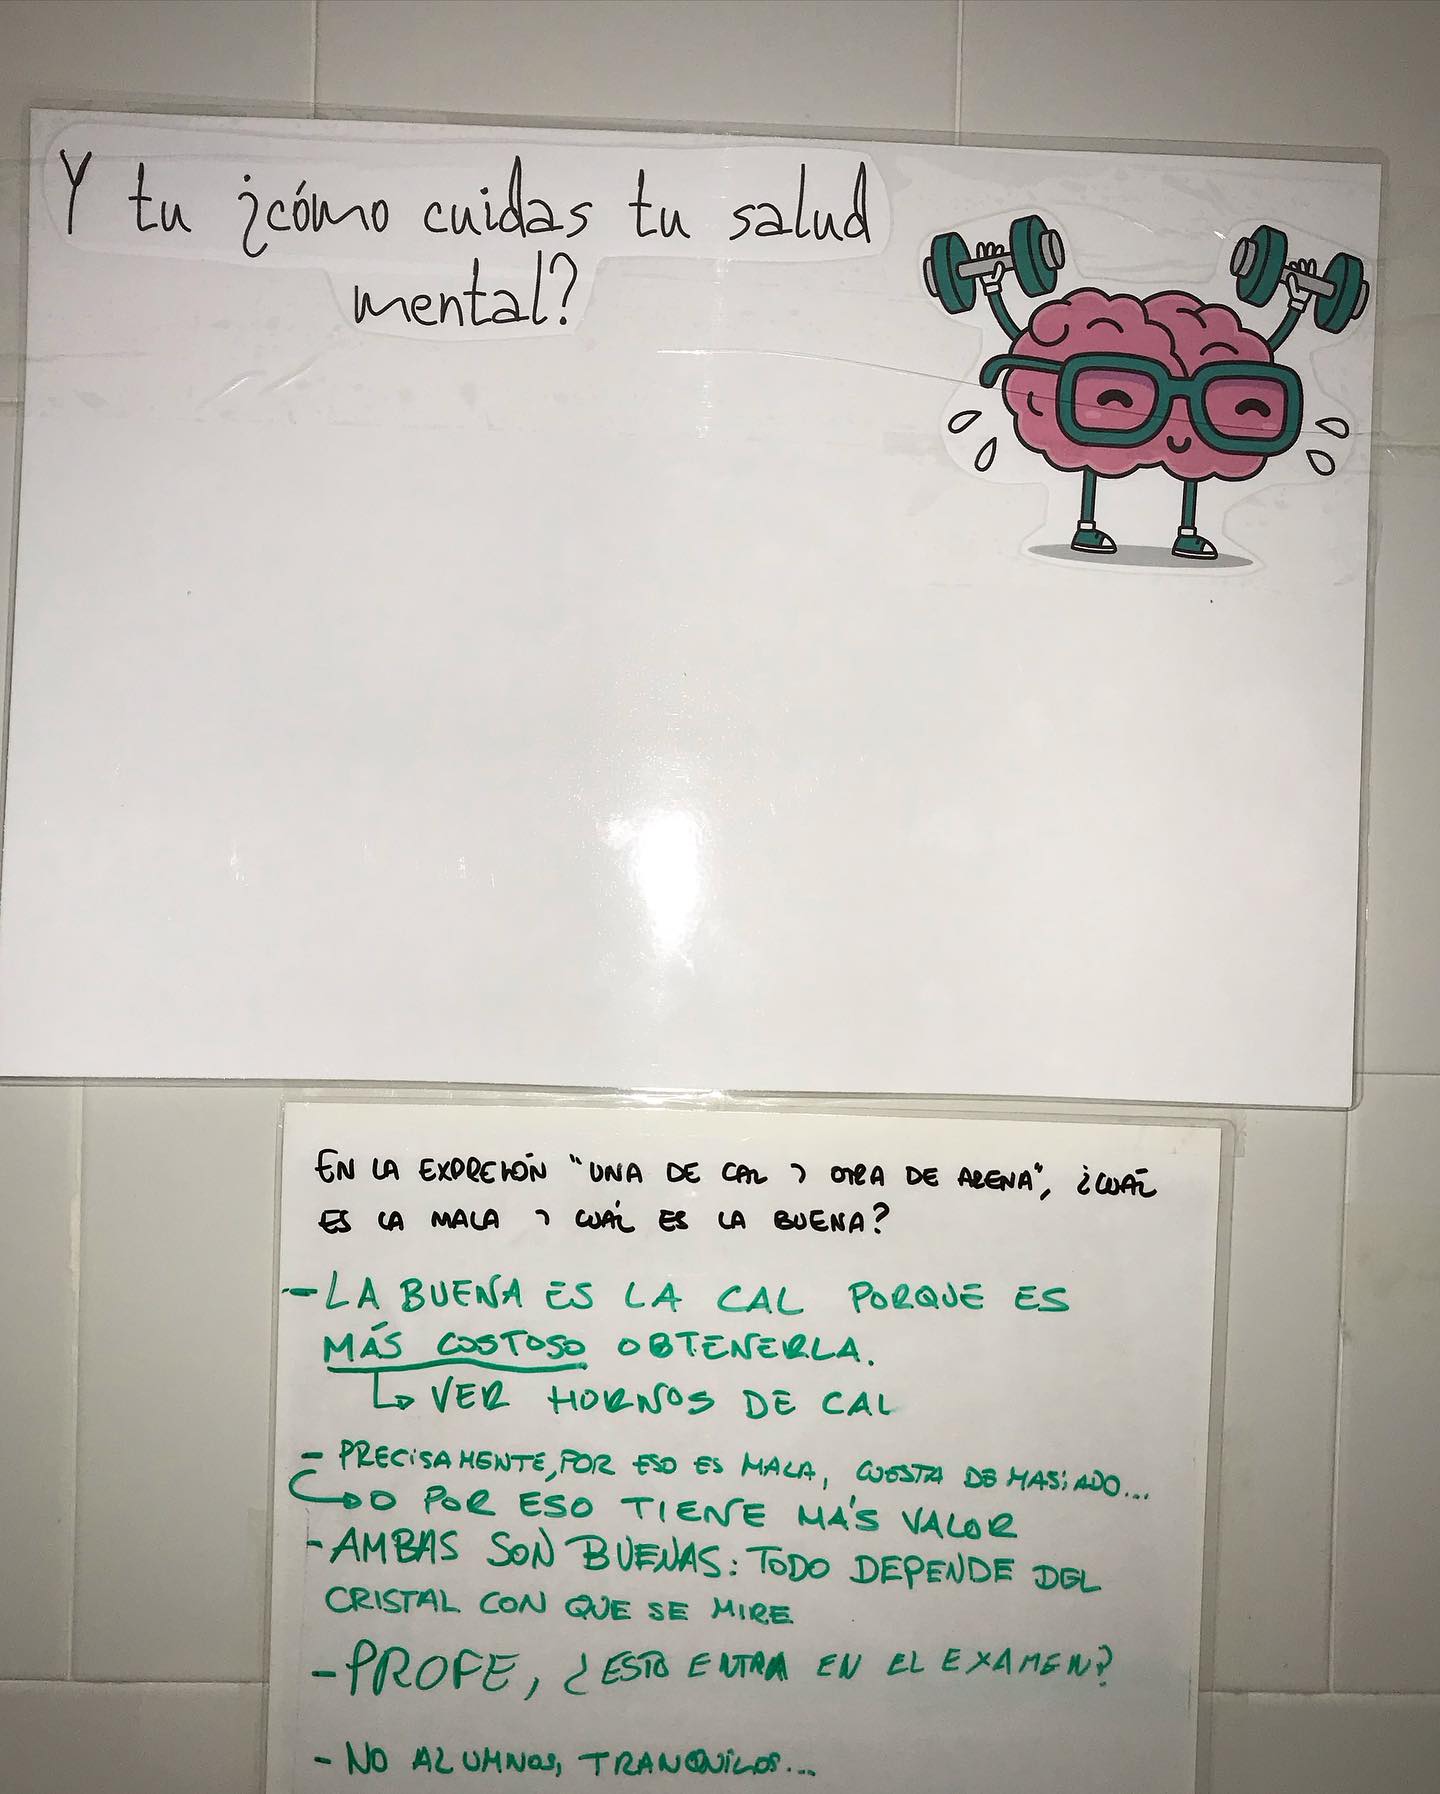 Y tu ¿cómo cuidas tu salud
mental?
EN LA EXPRESIÓN "UNA DE CAL Y OTRA DE ARENA", ¿CUÁL
ES LA MALA Y CUÁL ES LA BUENA?
- LA BUENA ES LA CAL PORQUE ES
MÁS COSTOSO OBTENERLA.
↳ VER HORNOS DE CAL
- PRECISAMENTE, POR ESO ES MALA, CUESTA DEMASIADO...
↳ O POR ESO TIENE MÁS VALOR
- AMBAS SON BUENAS: TODO DEPENDE DEL
CRISTAL CON QUE SE MIRE
- PROFE, ¿ESTO ENTRA EN EL EXAMEN?
- NO ALUMNOS, TRANQUILOS...